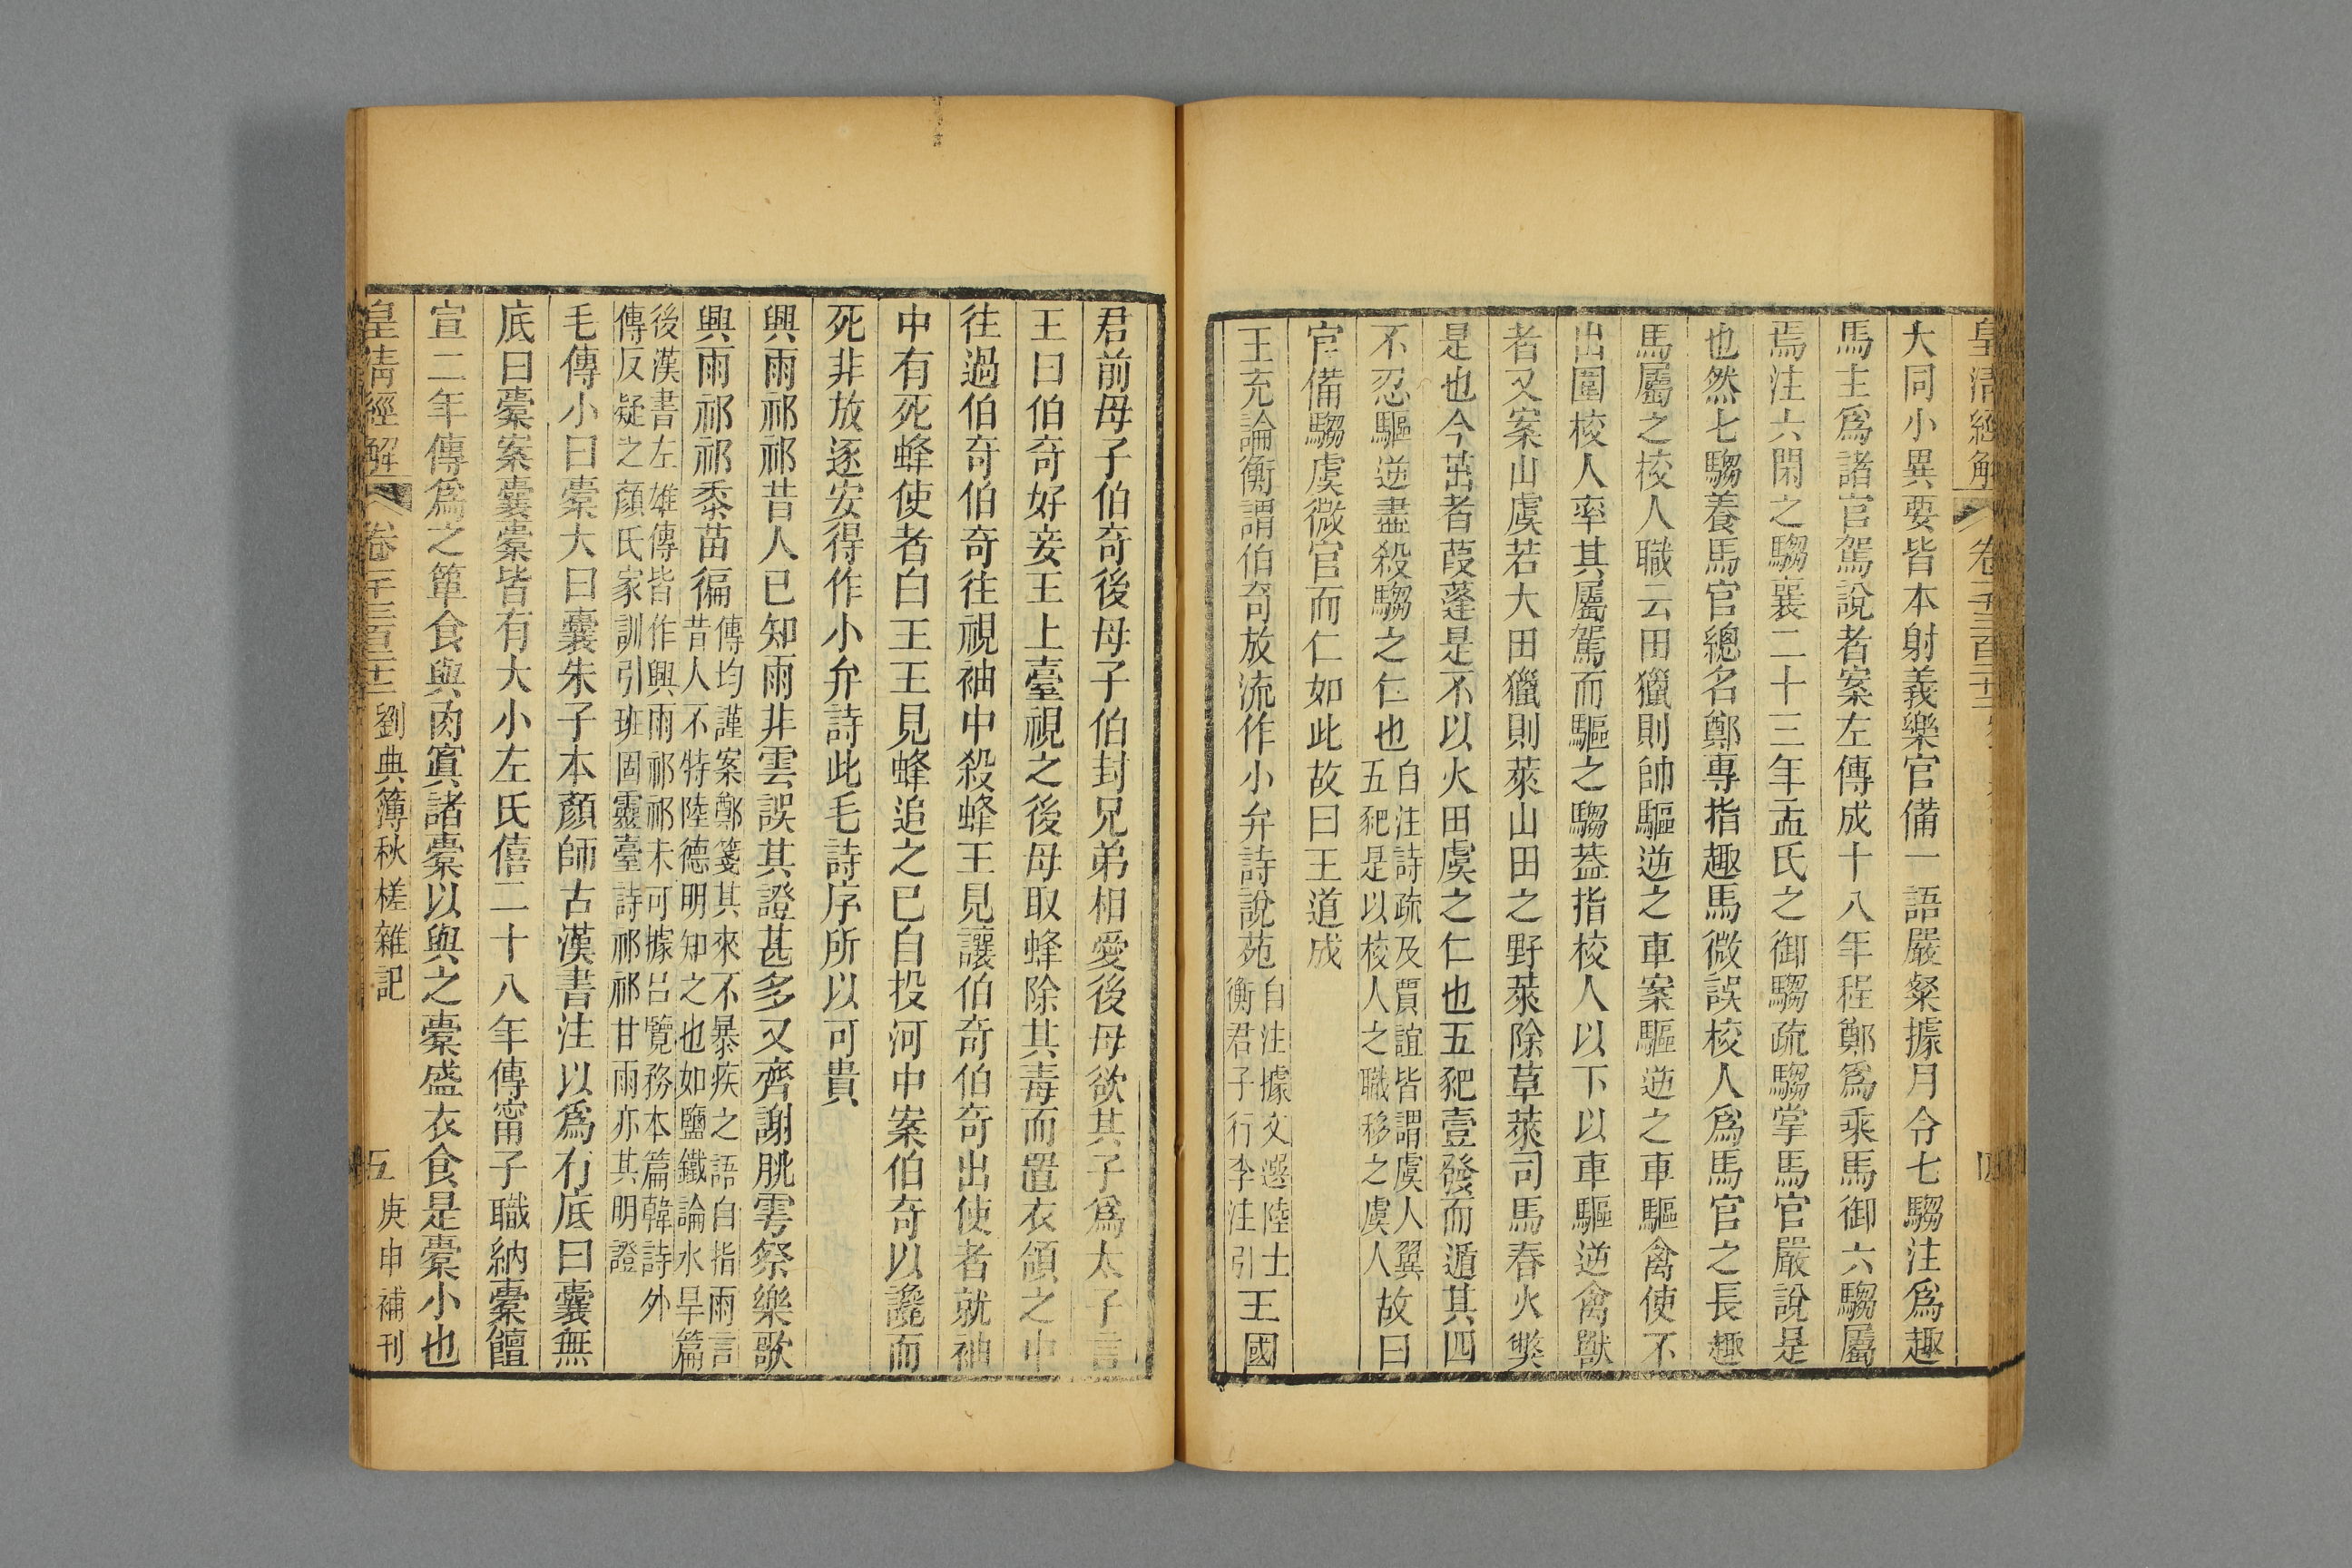 皇清經解 卷一千三百二十二
大同小異要皆本射義樂官備一語嚴粲據月令七騶注爲趣
馬主爲諸官駕說者案左傳成十八年程鄭爲乘馬御六騶屬
焉注六閑之騶襄二十三年孟氏之御騶疏騶掌馬官嚴說是
也然七騶養馬官總名鄭專指趣馬微誤校人爲馬官之長趣
馬屬之校人職云田獵則帥驅逆之車案驅逆之車驅禽使不
出圍校人率其屬駕而驅之騶葢指校人以下以車驅逆禽獸
者又案山虞若大田獵則萊山田之野萊除草萊司馬春火獘
是也今茁者葭蓬是不以火田虞之仁也五豝壹發而遁其四
不忍驅逆盡殺騶之仁也自注詩疏及賈誼皆謂虞人翼五豝是以校人之職移之虞人故曰
官備騶虞微官而仁如此故曰王道成
王充論衡謂伯奇放流作小弁詩說苑自注據文選陸士衡君子行李注引王國
君前母子伯奇後母子伯封兄弟相愛後母欲其子爲太子言
王曰伯奇好妾王上臺視之後母取蜂除其毒而置衣領之中
往過伯奇伯奇往視袖中殺蜂王見讓伯奇伯奇出使者就袖
中有死蜂使者白王王見蜂追之已自投河中案伯奇以讒而
死非放逐安得作小弁詩此毛詩序所以可貴
興雨祁祁昔人已知雨非雲誤其證甚多又齊謝朓雩祭樂歌
興雨祁祁黍苗徧傳均謹案鄭箋其來不暴疾之語自指雨言昔人不特陸德明知之也如鹽鐵論水旱篇
後漢書左雄傳皆作興雨祁祁未可據呂覽務本篇韓詩外傳反疑之顏氏家訓引班固靈臺詩祁祁甘雨亦其明證
毛傳小曰橐大曰囊朱子本顏師古漢書注以爲有底曰囊無
底曰橐案囊橐皆有大小左氏僖二十八年傳甯子職納橐饘
宣二年傳爲之簞食與肉寘諸橐以與之橐盛衣食是橐小也
皇清經解 卷一千三百二十二 劉典簿秋槎雜記 五 庚申補刊